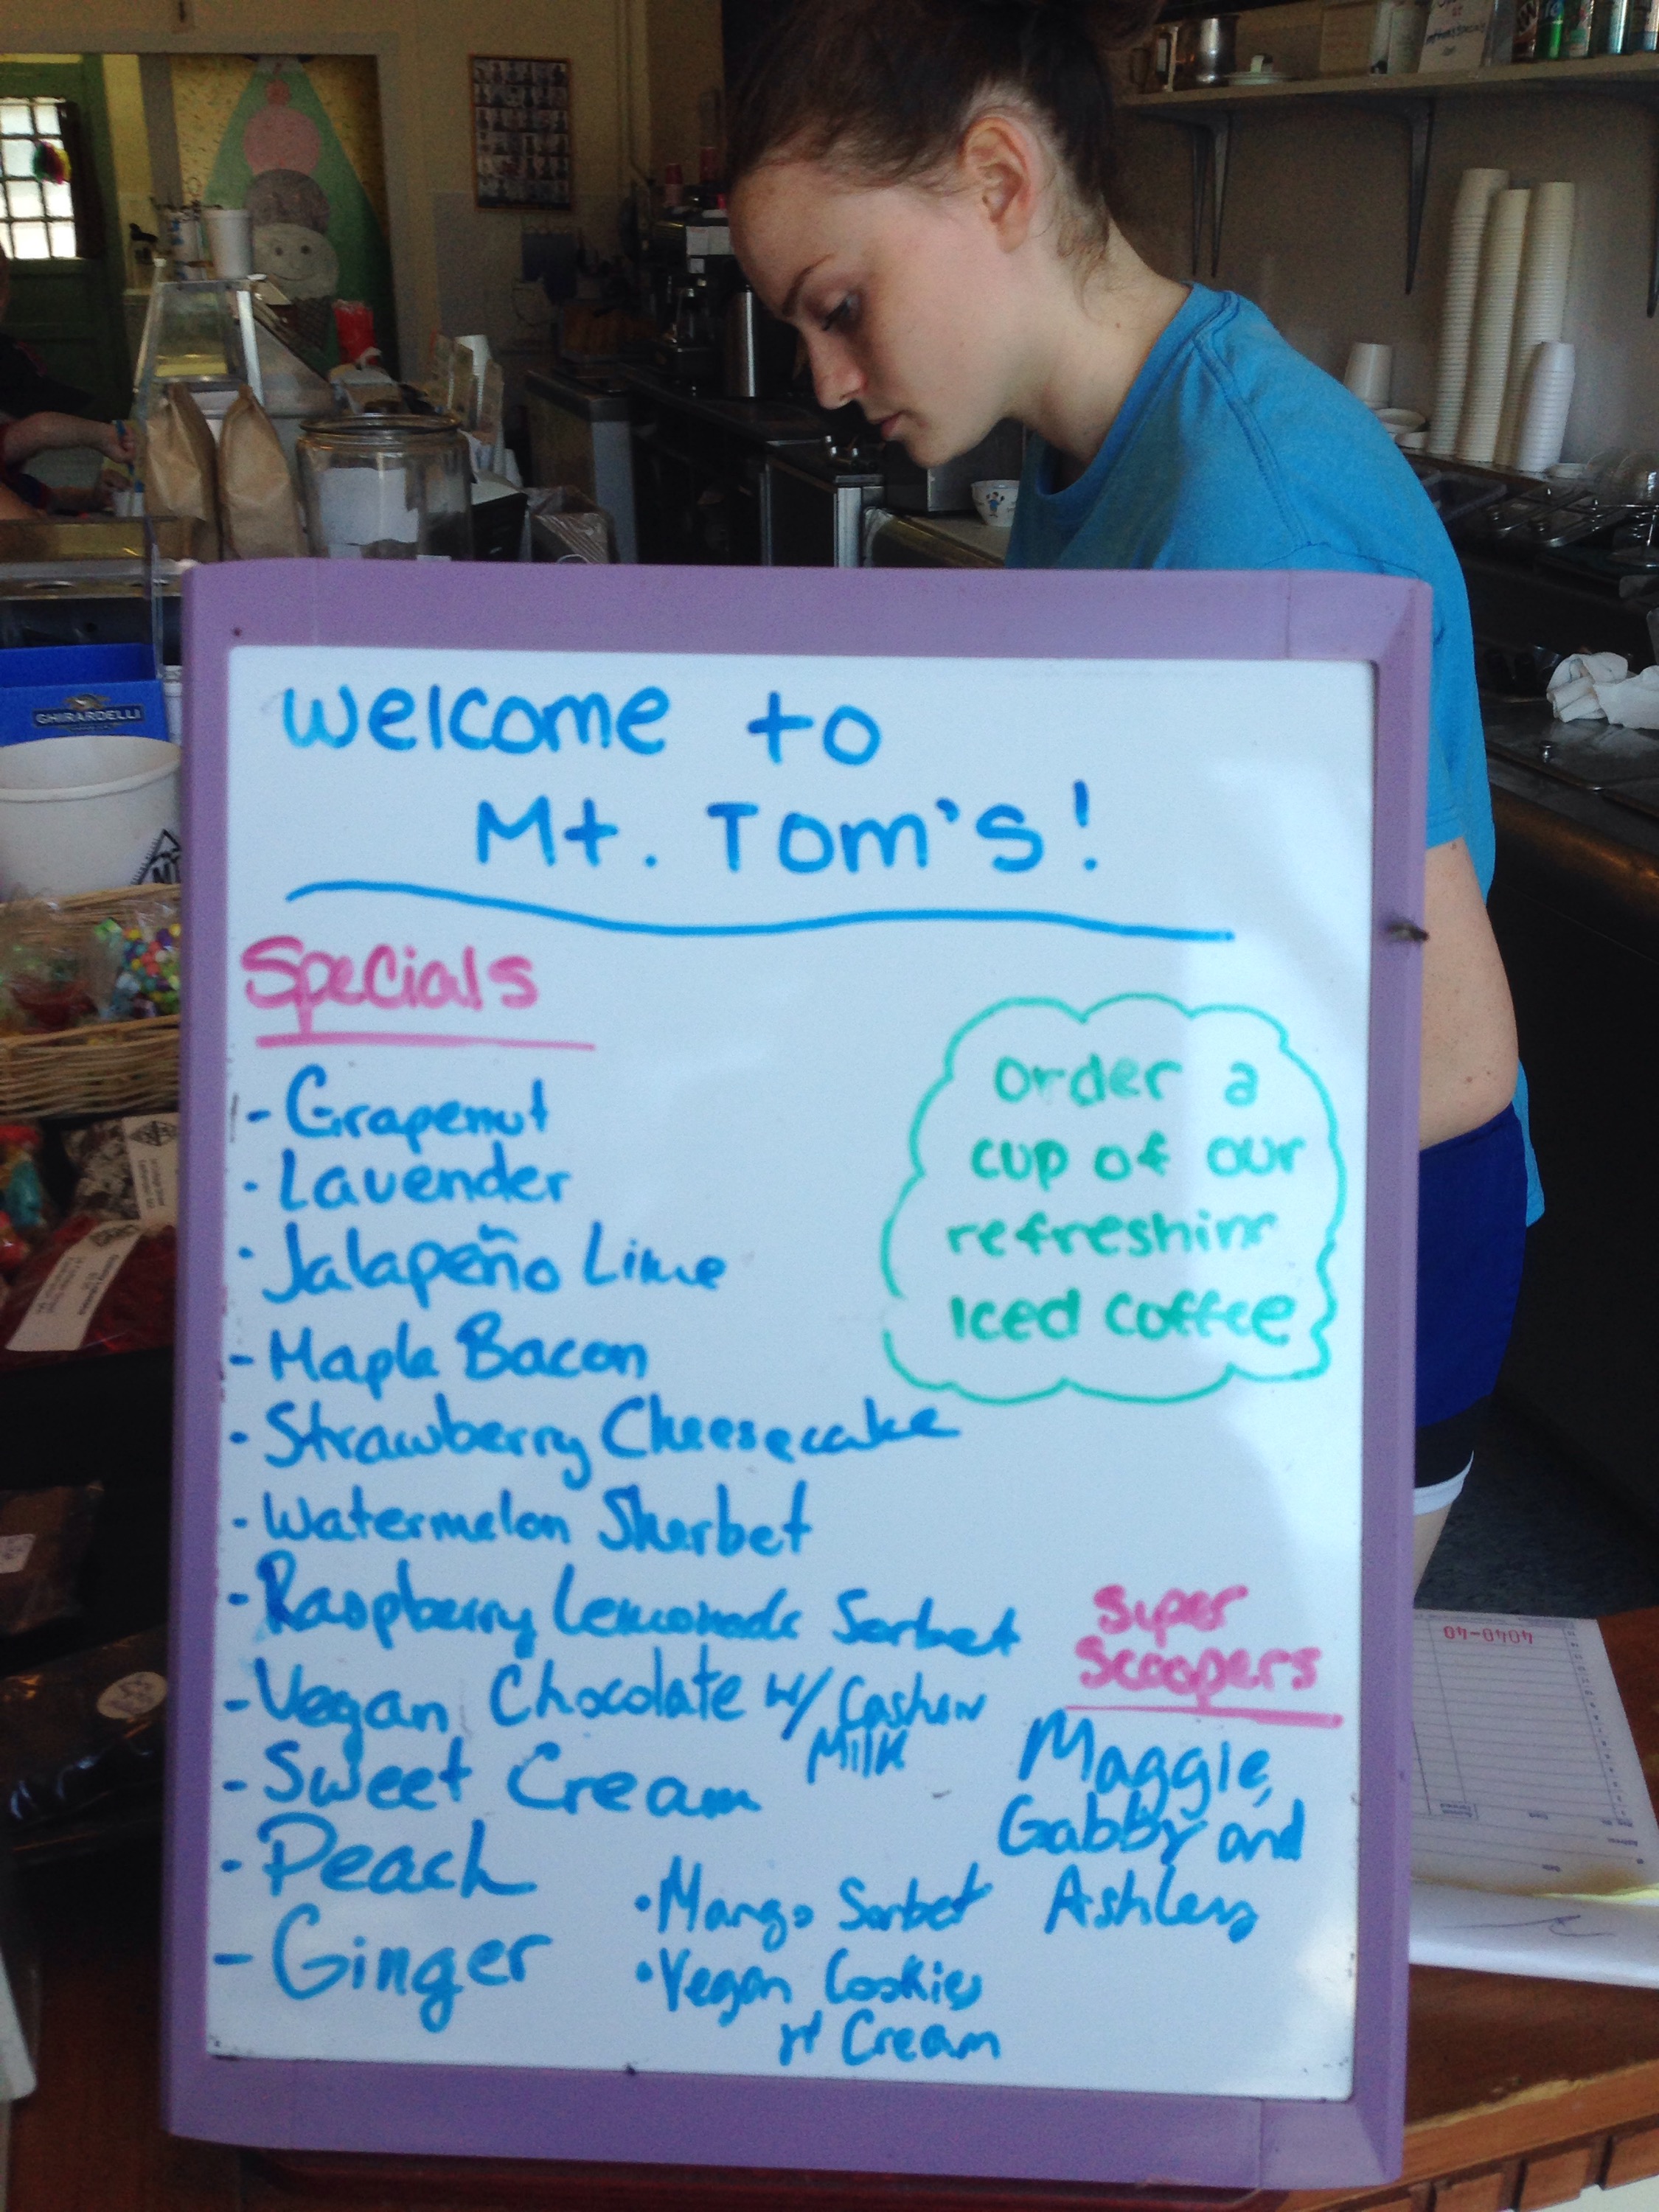 GHIRARDELLI
Welcome to
Mt. Tom's!
Specials
- Grapenut
- Lavender
- Jalapeño Lime
- Maple Bacon
- Strawberry Cheesecake
- Watermelon Sherbet
- Raspberry Lemonade Sorbet
- Vegan Chocolate w/ Cashew
Milk
- Sweet Cream
- Peach
- Ginger
• Mango Sorbet
• Vegan Cookies
n' Cream
Order a
cup of our
refreshing
iced coffee
Super
Scoopers
Maggie,
Gabby and
Ashley
4040-40